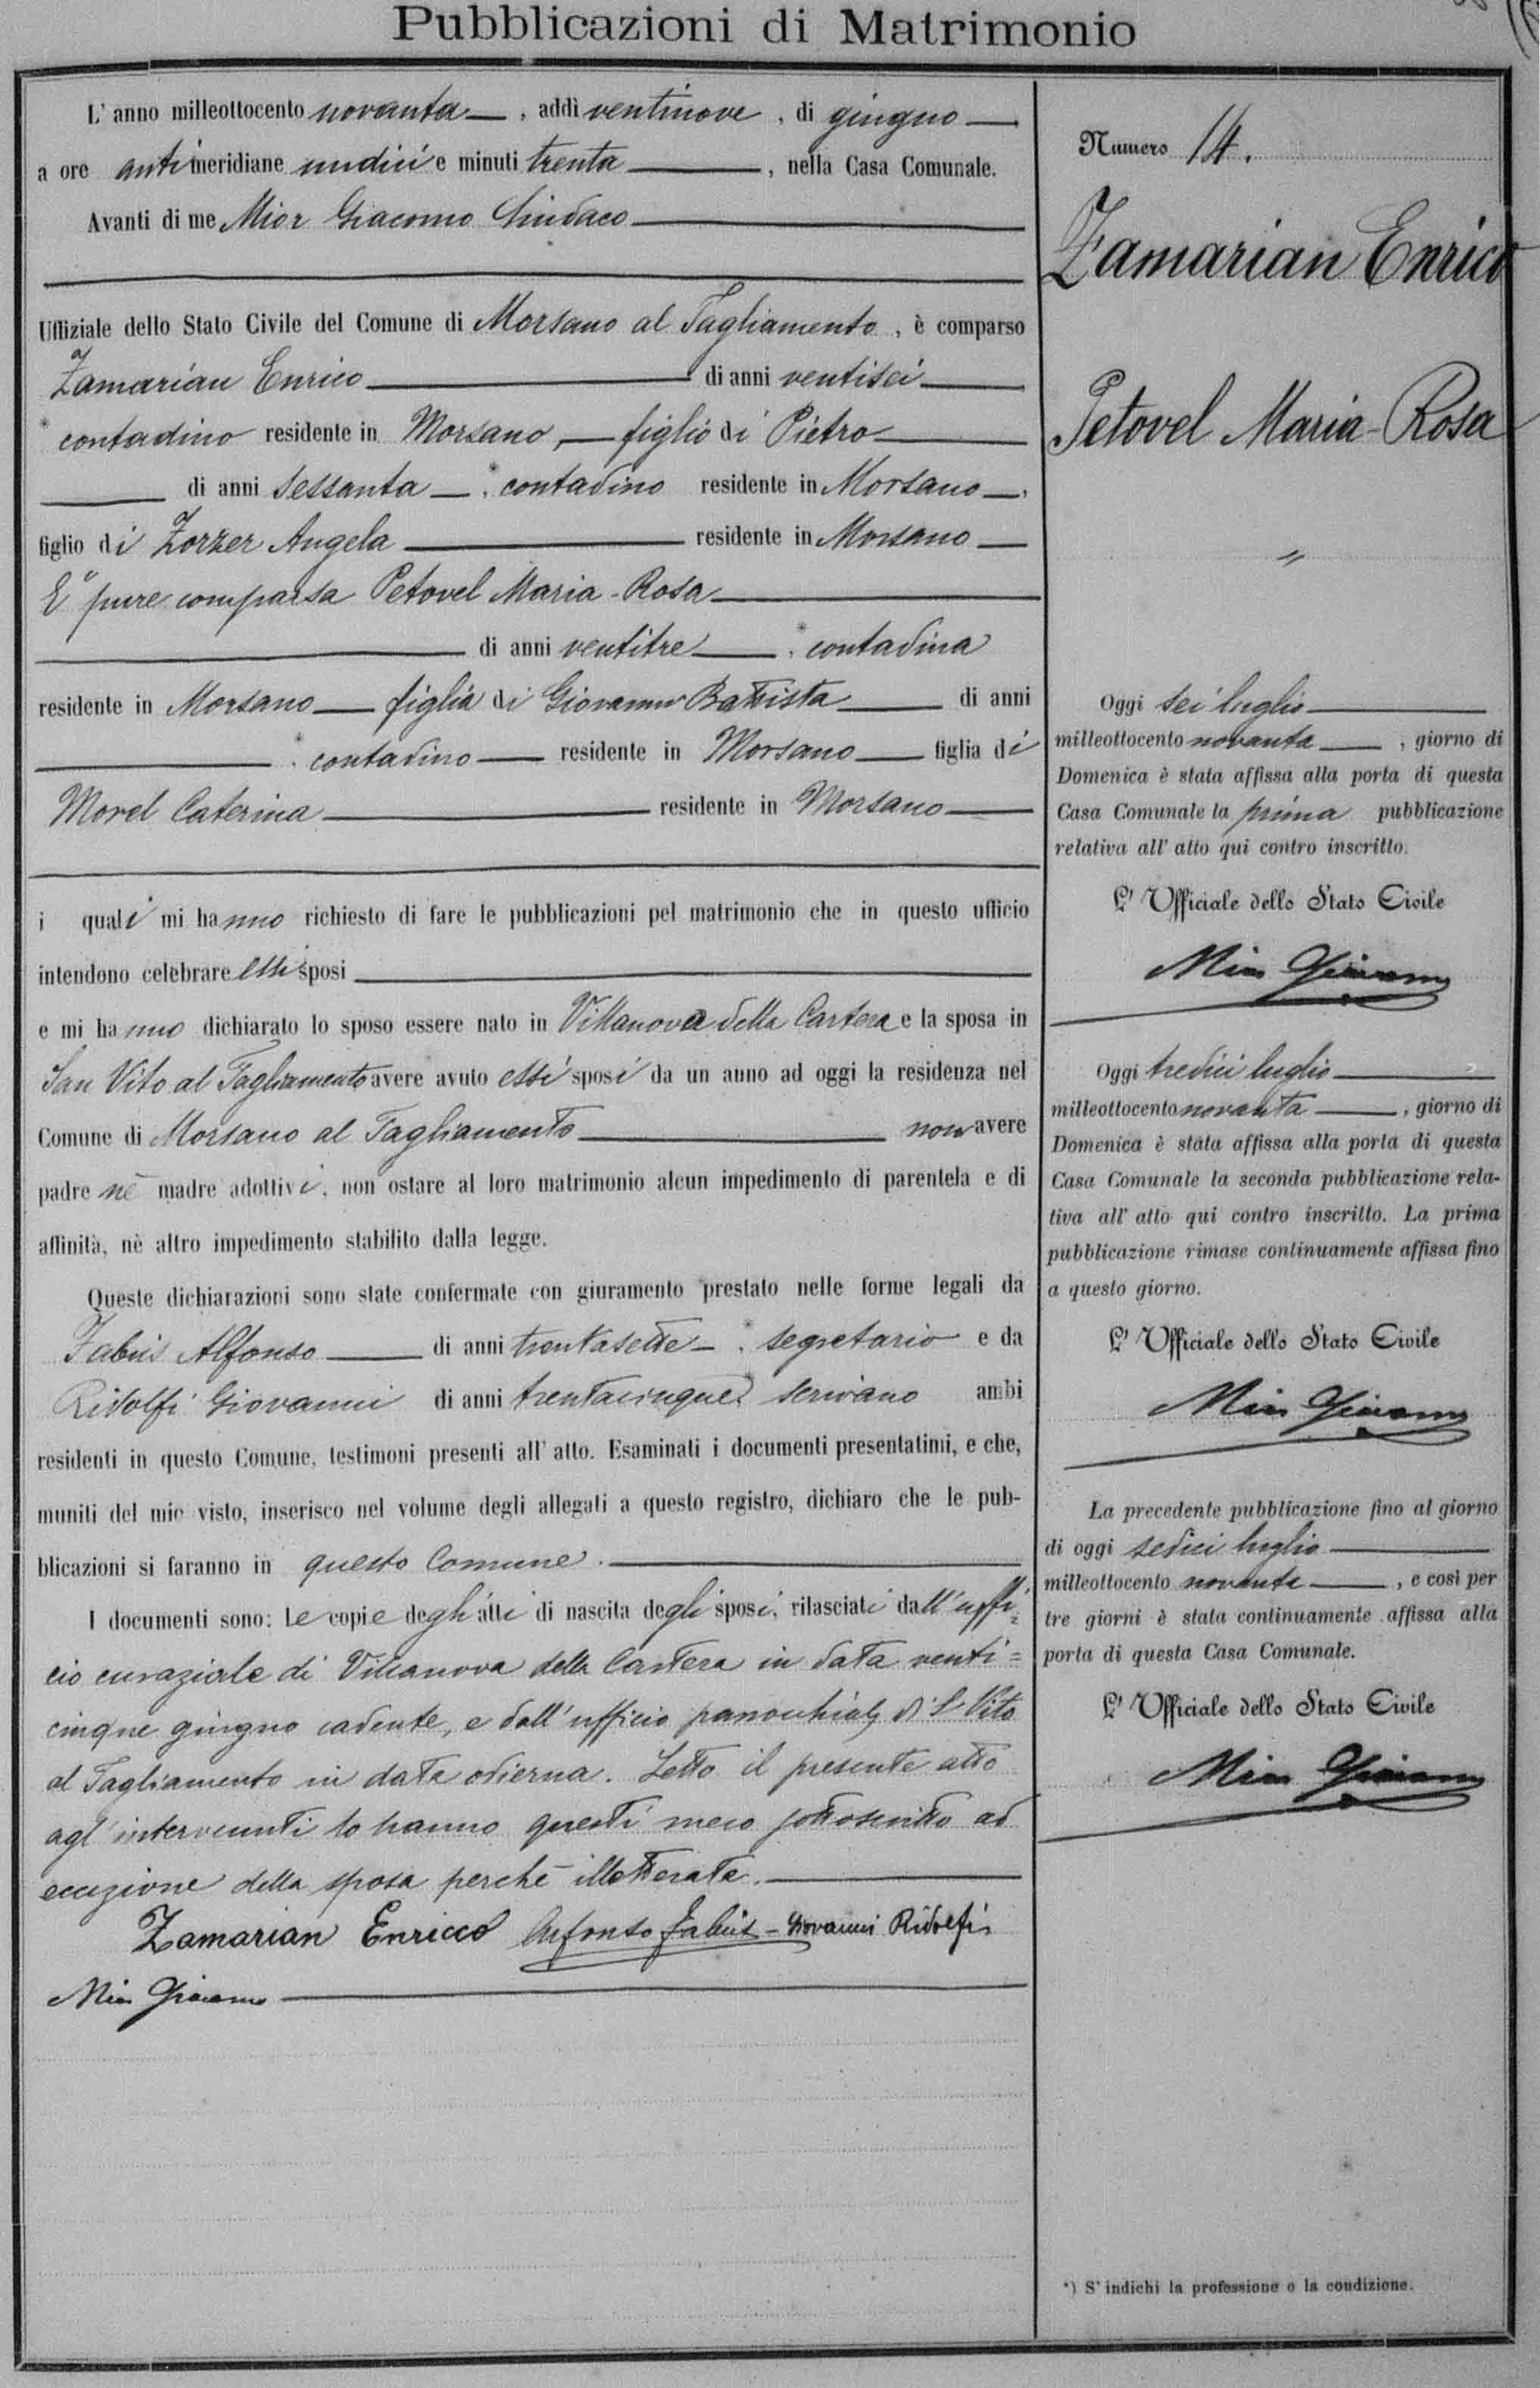 Pubblicazioni di Matrimonio
L' anno milleottocento novanta, addì ventinove, di giugno
a ore antimeridiane undici e minuti trenta, nella Casa Comunale.
Avanti di me Mior Giacomo Sindaco
Uffiziale dello Stato Civile del Comune di Morsano al Tagliamento, è comparso
Zamarian Enrico di anni ventisei
* contadino residente in Morsano, figlio di Pietro
di anni sessanta, * contadino residente in Morsano,
figlio di Zorzer Angela residente in Morsano
E' pure comparsa Petovel Maria-Rosa
di anni ventitre, * contadina
residente in Morsano figlia di Giovanni Battista di anni
, * contadino residente in Morsano figlia di
Morel Caterina residente in Morsano
i quali mi hanno richiesto di fare le pubblicazioni pel matrimonio che in questo ufficio
intendono celebrare essi sposi
e mi hanno dichiarato lo sposo essere nato in Villanova della Cartera e la sposa in
San Vito al Tagliamento avere avuto essi sposi da un anno ad oggi la residenza nel
Comune di Morsano al Tagliamento non avere
padre nè madre adottivi, non ostare al loro matrimonio alcun impedimento di parentela e di
affinità, nè altro impedimento stabilito dalla legge.
Queste dichiarazioni sono state confermate con giuramento prestato nelle forme legali da
Fabris Alfonso di anni trentasette, * segretario e da
Ridolfi Giovanni di anni trentacinque, scrivano ambi
residenti in questo Comune, testimoni presenti all' atto. Esaminati i documenti presentatimi, e che,
muniti del mio visto, inserisco nel volume degli allegati a questo registro, dichiaro che le pub-
blicazioni si faranno in questo Comune.
I documenti sono: Le copie degli atti di nascita degli sposi, rilasciati dall'uffi=
cio curaziale di Villanova della Cartera in data venti=
cinque giugno cadente, e dall'ufficio parrocchiale di S. Vito
al Tagliamento in data odierna. Letto il presente atto
agl'intervenuti lo hanno questi meco sottoscritto ad
eccezione della sposa perchè illetterata.
Zamarian Enricco Alfonso Fabris - Giovanni Ridolfi
Mior Giacomo
Numero 14.
Zamarian Enrico
Petovel Maria-Rosa
"
Oggi sei luglio
milleottocento novanta, giorno di
Domenica è stata affissa alla porta di questa
Casa Comunale la prima pubblicazione
relativa all' atto qui contro inscritto.
L' Ufficiale dello Stato Civile
Mior Giacomo
Oggi tredici luglio
milleottocento novanta, giorno di
Domenica è stata affissa alla porta di questa
Casa Comunale la seconda pubblicazione rela-
tiva all' atto qui contro inscritto. La prima
pubblicazione rimase continuamente affissa fino
a questo giorno.
L' Ufficiale dello Stato Civile
Mior Giacomo
La precedente pubblicazione fino al giorno
di oggi sedici luglio
milleottocento novanta, e così per
tre giorni è stata continuamente affissa alla
porta di questa Casa Comunale.
L' Ufficiale dello Stato Civile
Mior Giacomo
*) S' indichi la professione o la condizione.